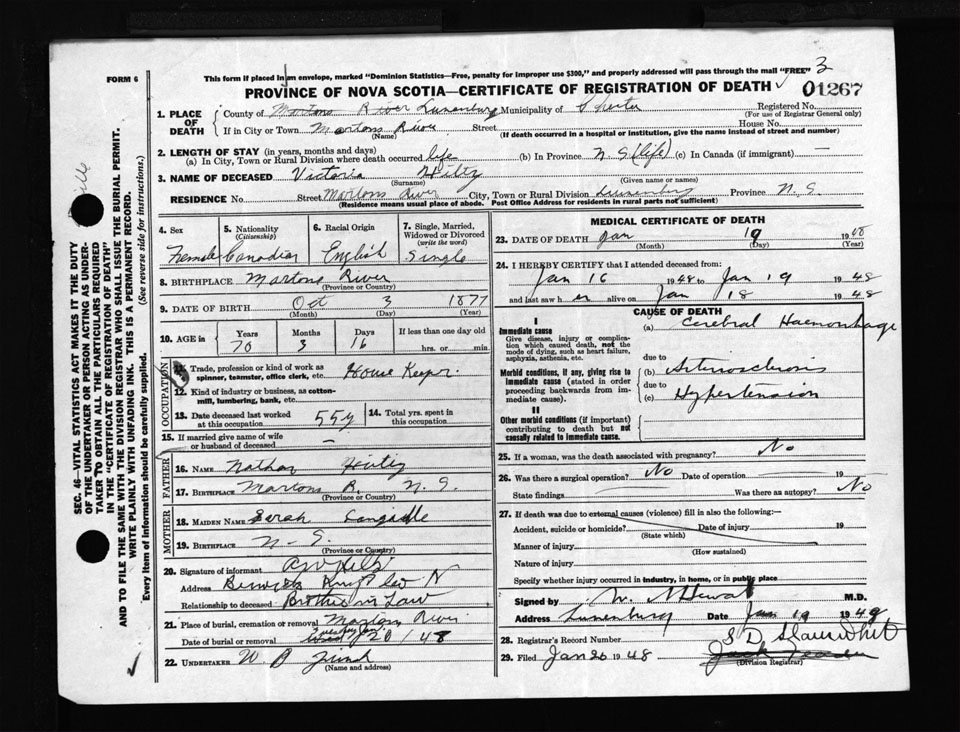 FORM 6
This form if placed in an envelope, marked "Dominion Statistics—Free, penalty for improper use $300," and properly addressed will pass through the mail "FREE" 3
PROVINCE OF NOVA SCOTIA—CERTIFICATE OF REGISTRATION OF DEATH 01267
1. PLACE OF DEATH
County of Martons River Lunenburg Municipality of Chester Registered No.
(For use of Registrar General only)
If in City or Town Martons River Street House No.
(Name) (If death occurred in a hospital or institution, give the name instead of street and number)
2. LENGTH OF STAY (in years, months and days)
(a) In City, Town or Rural Division where death occurred life (b) In Province N. S (life) (c) In Canada (if immigrant) —
3. NAME OF DECEASED Victoria Hiltz
(Surname) (Given name or names)
RESIDENCE No. Street Martons River City, Town or Rural Division Lunenburg Province N. S.
(Residence means usual place of abode. Post Office Address for residents in rural parts not sufficient)
4. Sex 5. Nationality (Citizenship) 6. Racial Origin 7. Single, Married, Widowed or Divorced (write the word)
Female Canadian English Single
8. BIRTHPLACE Martons River
(Province or Country)
9. DATE OF BIRTH Oct 3 1877
(Month) (Day) (Year)
10. AGE in Years Months Days If less than one day old
70 3 16 hrs. or min.
OCCUPATION
11. Trade, profession or kind of work as spinner, teamster, office clerk, etc. House Keeper
12. Kind of industry or business, as cotton-mill, lumbering, bank, etc.
13. Date deceased last worked at this occupation 55y 14. Total yrs. spent in this occupation
15. If married give name of wife or husband of deceased —
FATHER
16. NAME Nathan Hiltz
17. BIRTHPLACE Martons R. N. S.
(Province or Country)
MOTHER
18. MAIDEN NAME Serah
19. BIRTHPLACE N. S.
(Province or Country)
20. Signature of informant
Address Berwick Kings N
Relationship to deceased Brother in Law
21. Place of burial, cremation or removal Martons River
Date of burial or removal 20/48
22. UNDERTAKER W. B
(Name and address)
MEDICAL CERTIFICATE OF DEATH
23. DATE OF DEATH Jan 19 1948
(Month) (Day) (Year)
24. I HEREBY CERTIFY that I attended deceased from:
Jan 16 1948 to Jan 19 1948
and last saw her alive on Jan 18 1948
CAUSE OF DEATH
I
Immediate cause
Give disease, injury or complication which caused death, not the mode of dying, such as heart failure, asphyxia, asthenia, etc.
(a) Cerebral Haemorrhage
due to
Morbid conditions, if any, giving rise to immediate cause (stated in order proceeding backwards from immediate cause).
(b) Arteriosclerosis
due to
(c) Hypertension
II
Other morbid conditions (if important) contributing to death but not causally related to immediate cause.
25. If a woman, was the death associated with pregnancy? No
26. Was there a surgical operation? No Date of operation 19
State findings Was there an autopsy? No
27. If death was due to external causes (violence) fill in also the following:—
Accident, suicide or homicide? Date of injury 19
(State which)
Manner of injury
(How sustained)
Nature of injury
Specify whether injury occurred in industry, in home, or in public place
Signed by M.D.
Address Lunenburg Date Jan 19 1948
28. Registrar's Record Number
29. Filed Jan 20 1948
(Division Registrar)
SEC. 46—VITAL STATISTICS ACT MAKES IT THE DUTY
OF THE UNDERTAKER OR PERSON ACTING AS UNDERTAKER TO OBTAIN ALL THE PARTICULARS REQUIRED
IN THE "CERTIFICATE OF REGISTRATION OF DEATH"
AND TO FILE THE SAME WITH THE DIVISION REGISTRAR WHO SHALL ISSUE THE BURIAL PERMIT.
WRITE PLAINLY WITH UNFADING INK. THIS IS A PERMANENT RECORD.
Every item of information should be carefully supplied. (See reverse side for instructions.)